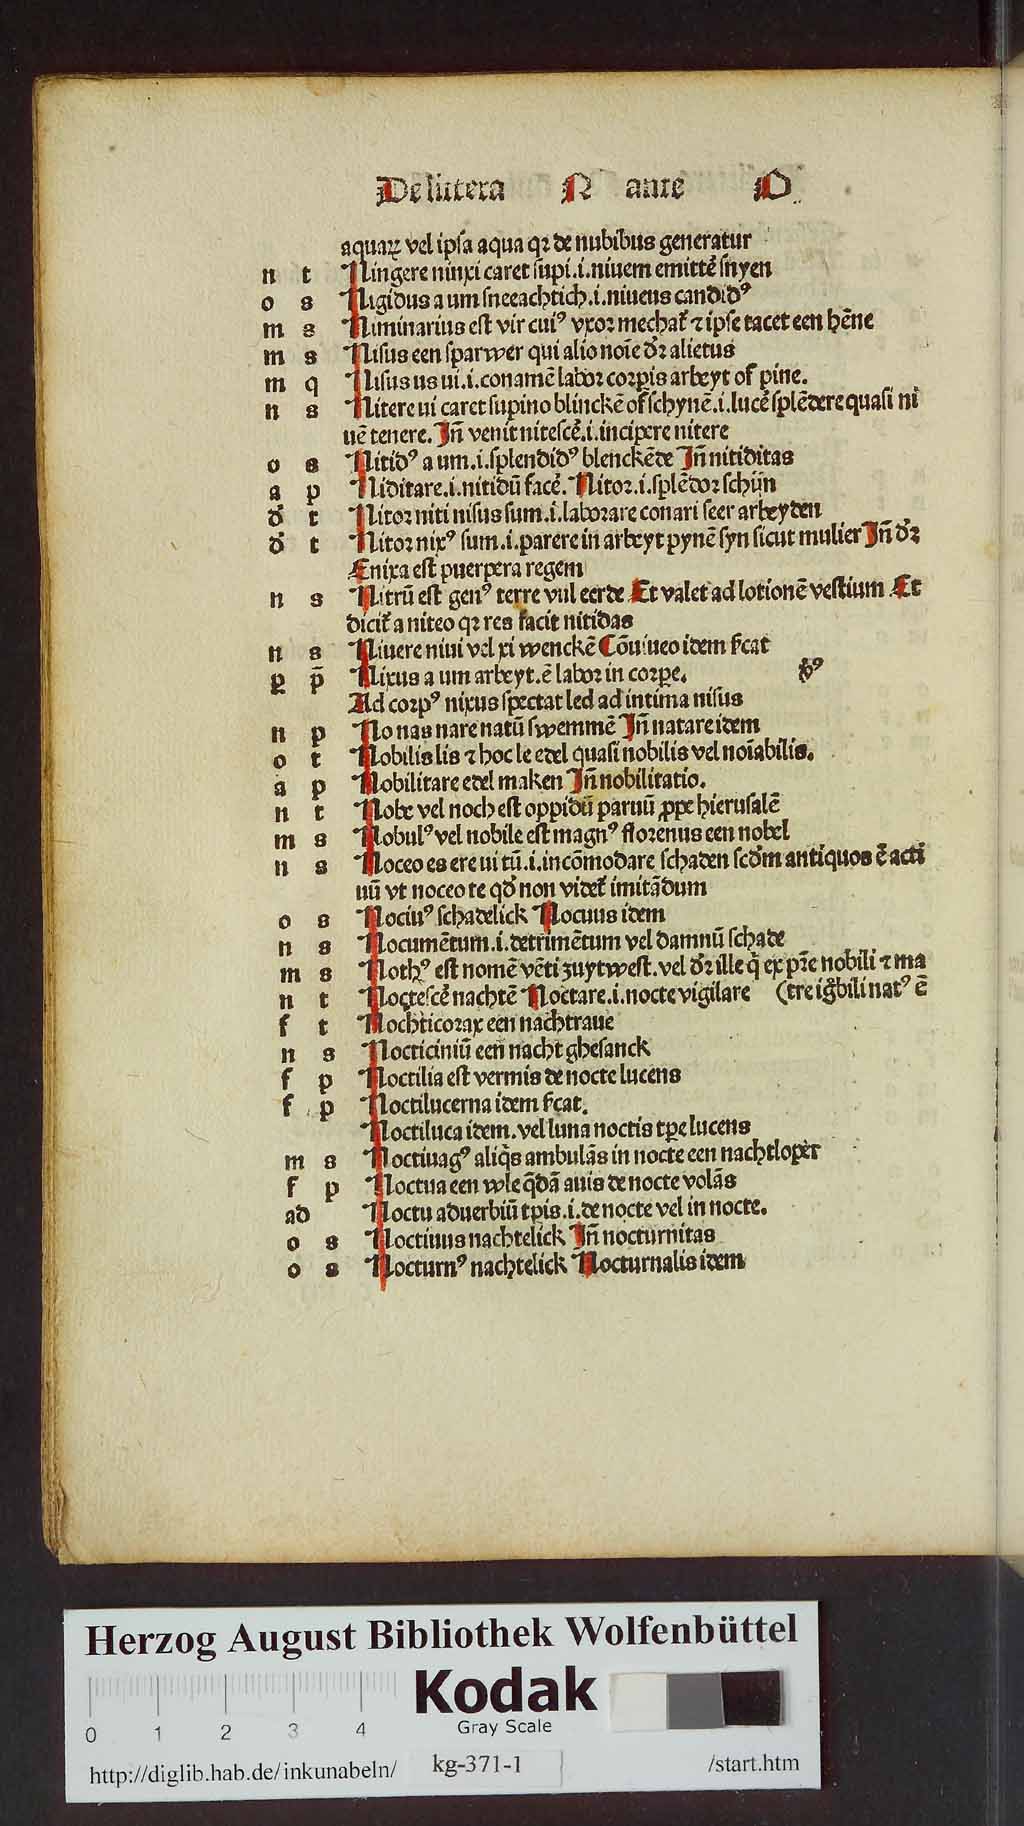 De littera N ante O
aquaꝝ vel ipsa aqua qꝛ de nubibus generatur
n t Ningere ninxi caret supi.i.niuem emittē snyen
o s Nigidus a um sneeachtich.i.niueus candidꝰ
m s Niminarius est vir cuiꝰ vxoꝛ mechat̄ ⁊ ipse tacet een hēne
m s Nisus een sparwer qui alio noīe dꝛ alietus
m q Nisus us ui.i.conamē laboꝛ coꝛpis arbeyt of pine.
n s Nitere ui caret supino blinckē of schynē.i.lucē splēdere quasi ni
uē tenere. Jn̄ venit nitescē.i.incipere nitere
o s Nitidꝰ a um.i.splendidꝰ blenckēde Jn̄ nitiditas
a p Niditare.i.nitidū facē. Nitoꝛ.i.splēdoꝛ schijn
d t Nitoꝛ niti nisus sum.i.laboꝛare conari seer arbeyden
d t Nitoꝛ nixꝰ sum.i.parere in arbeyt pynē syn sicut mulier Jn̄ dꝛ
Enixa est puerpera regem
n s Nitrū est genꝰ terre vul eerde Et valet ad lotionē vestium Et
dicit̄ a niteo qꝛ res facit nitidas
n s Niuere niui vel xi wenckē Cōuiueo idem sīcat
p̱ p̄ Nixus a um arbeyt.ē laboꝛ in coꝛpe. v̄ꝰ
Ad coꝛpꝰ nixus spectat led ad intima nisus
n p No nas nare natū swemmē Jn̄ natare idem
o t Nobilis lis ⁊ hoc le edel quasi nobilis vel noīabilis.
a p Nobilitare edel maken Jn̄ nobilitatio.
n t Nobe vel noch est oppidū paruū ꝓpe hierusalē
m s Nobulꝰ vel nobile est magnꝰ floꝛenus een nobel
n s Noceo es ere ui tū.i.incōmodare schaden scdm antiquos ē acti
uū vt noceo te qd non videt̄ imitādum
o s Nociuꝰ schadelick Nocuus idem
n s Nocumētum.i.detrimētum vel damnū schade
m s Nothꝰ est nomē vēti zuytwest.vel dꝛ ille q̄ ex pr̄e nobili ⁊ ma
n t Noctescē nachtē Noctare.i.nocte vigilare (tre ig̊bili natꝰ ē
f t Nochticoꝛax een nachtraue
n s Nocticiniū een nacht ghesanck
f p Noctilia est vermis de nocte lucens
f p Noctilucerna idem sīcat.
Noctiluca idem.vel luna noctis tꝑe lucens
m s Noctiuagꝰ aliq̄s ambulās in nocte een nachtloper
f p Noctua een wle q̄dā auis de nocte volās
ad Noctu aduerbiū tꝑis.i.de nocte vel in nocte.
o s Noctiuus nachtelick Jn̄ nocturnitas
o s Nocturnꝰ nachtelick Nocturnalis idem
Herzog August Bibliothek Wolfenbüttel
Kodak
0 1 2 3 4 Gray Scale
http://diglib.hab.de/inkunabeln/ kg-371-1 /start.htm